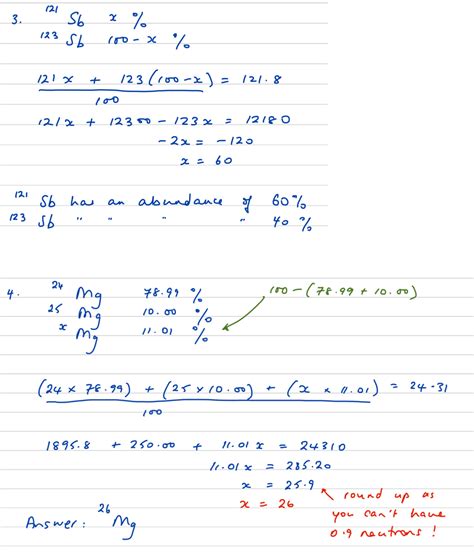 3. ¹²¹Sb x %
¹²³Sb 100 - x %
121x + 123(100-x) = 121.8
100
121x + 12300 - 123x = 12180
-2x = -120
x = 60
¹²¹Sb has an abundance of 60%
¹²³Sb " " " " 40%
4. ²⁴Mg 78.99 % 100 - (78.99 + 10.00)
²⁵Mg 10.00 %
ˣMg 11.01 %
(24 x 78.99) + (25 x 10.00) + (x x 11.01) = 24.31
100
1895.8 + 250.00 + 11.01x = 24310
11.01x = 285.20
x = 25.9
x = 26
round up as
you can't have
0.9 neutrons!
Answer: ²⁶Mg